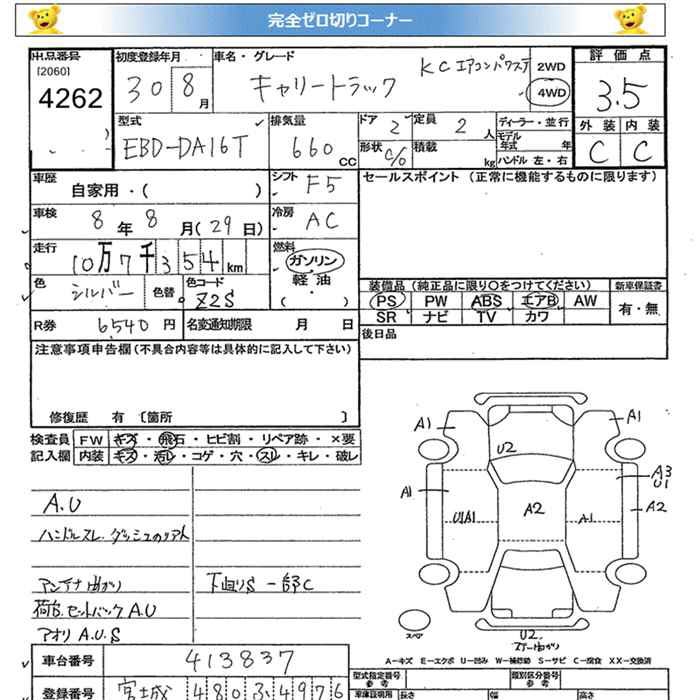 完全ゼロ切りコーナー
出品番号
[2060]
4262
初度登録年月
30 8月
車名・グレード
キャリートラック
KCエアコンパワステ
2WD
4WD
評価点
3.5
外装 内装
C C
型式
EBD-DA16T
排気量
660
CC
ドア
2
形状
定員
2人
積載
kg
ディーラー・並行
モデル
年式 年
ハンドル 左・右
車歴
自家用・( )
シフト
F5
セールスポイント (正常に機能するものに限ります)
車検
8年8月(29日)
冷房
AC
走行
10万7千354km
燃料
ガソリン
軽油
( )
色
シルバー
色替
色コード
Z2S
装備品 (純正品に限り○をつけてください)
新車保証書
PS PW ABS エアB AW
SR ナビ TV カワ
有・無
R券
6540円
名変通知期限
月 日
後日品
注意事項申告欄 (不具合内容等は具体的に記入して下さい)
修復歴 有 〔箇所 〕
検査員
記入欄
FW キズ・飛石・ヒビ割・リペア跡・×要
内装 キズ・汚れ・コゲ・穴・スレ・キレ・破レ
A.U
ハンドルスレ.
アンテナ曲がり
下廻りS 一部C
荷台.セットバックA.U
アオリA.U.S
A1
A1
U2
A3
U1
A1
A2
U1A1
A2
A1
スペア
U2
A−キズ E−エクボ U−凹み W−補修跡 S−サビ C−腐食 XX−交換済
車台番号
413837
登録番号
宮城 480 54976
型式指定番号
参考
類別区分番号
参考
車庫証明用
長さ
幅
高さ